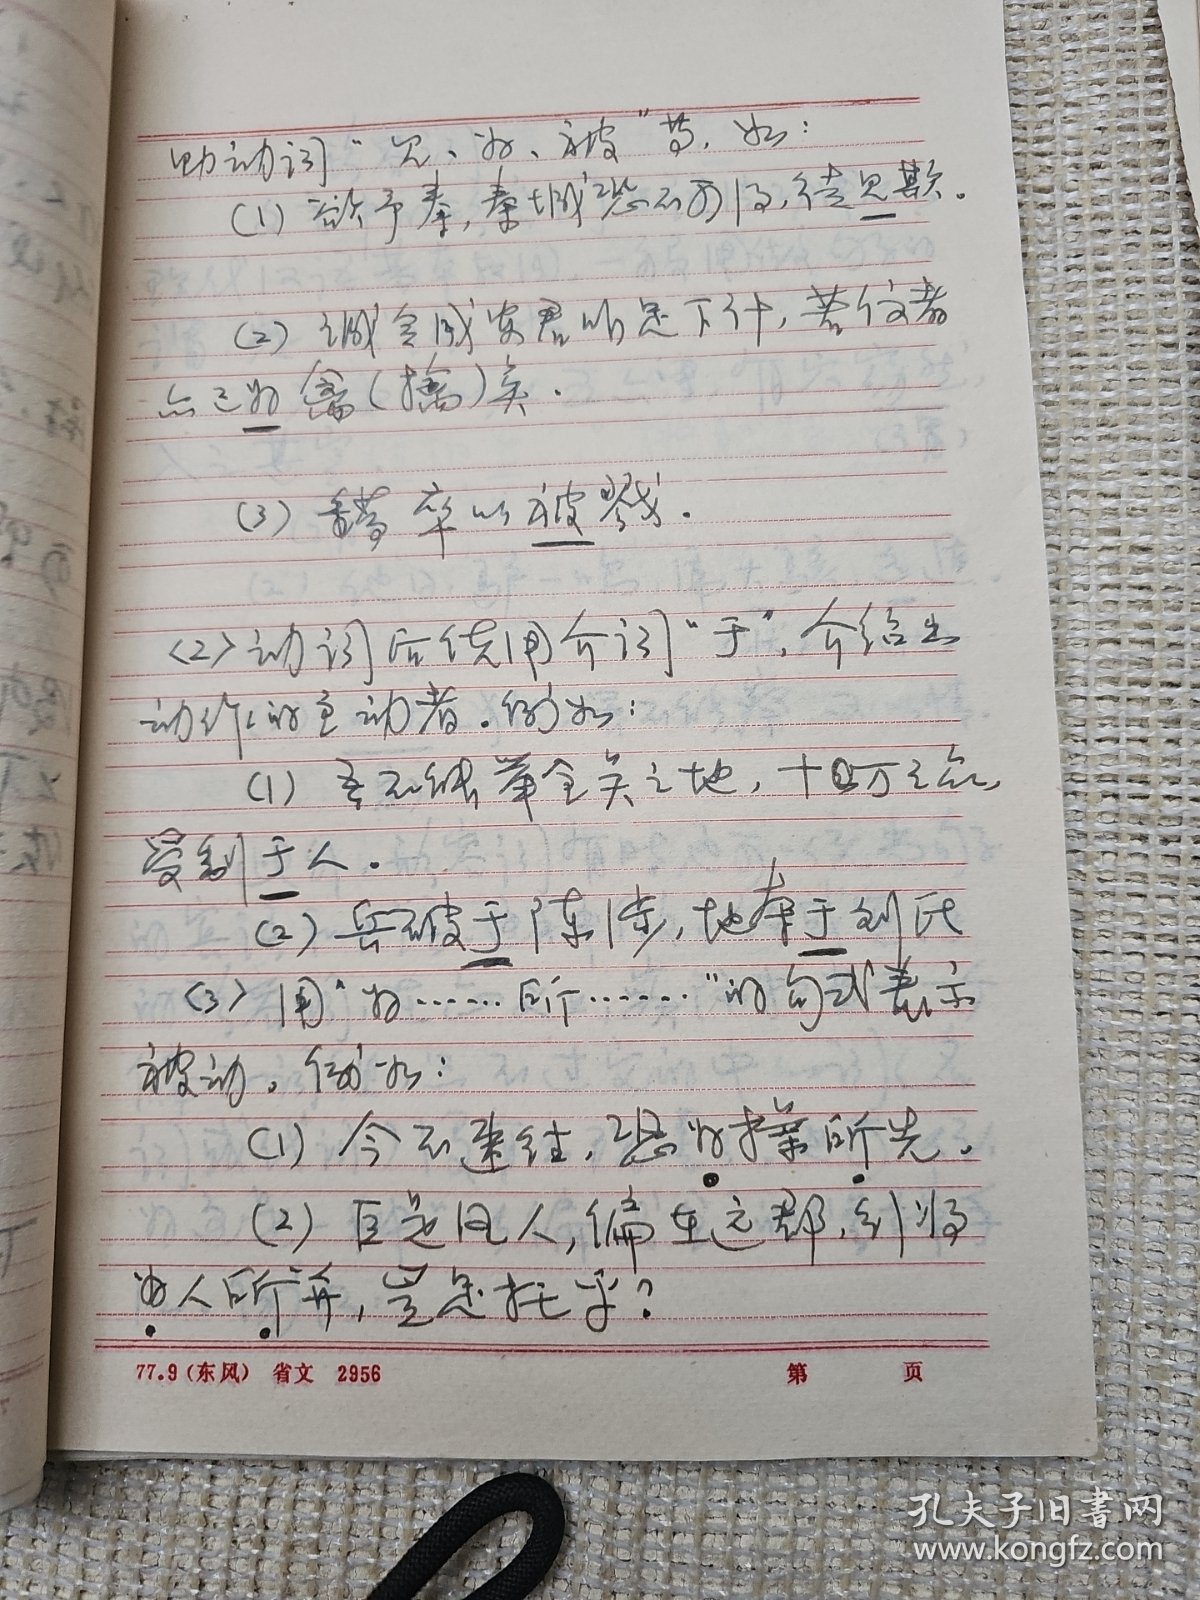 助动词“见、为、被”等，如：
(1) 欲予秦，秦城恐不可得，徒见欺。
(2) 诚令成安君听足下计，若信者
亦已为禽(擒)矣．
(3) 错卒以被戮．
<2>动词后绕用介词“于”，介绍出
动作的主动者．例如：
(1) 吾不能举全吴之地，十万之众，
受制于人．
(2) 兵破于陈涉，地夺于刘氏
<3>用“为……所……”的句式表示
被动。例如：
(1) 今不速往，恐为操所先。
(2) 巨是凡人，偏在远郡，行将
为人所并，岂足托乎？
77.9(东风) 省文 2956 第 页
孔夫子旧书网
www.kongfz.com